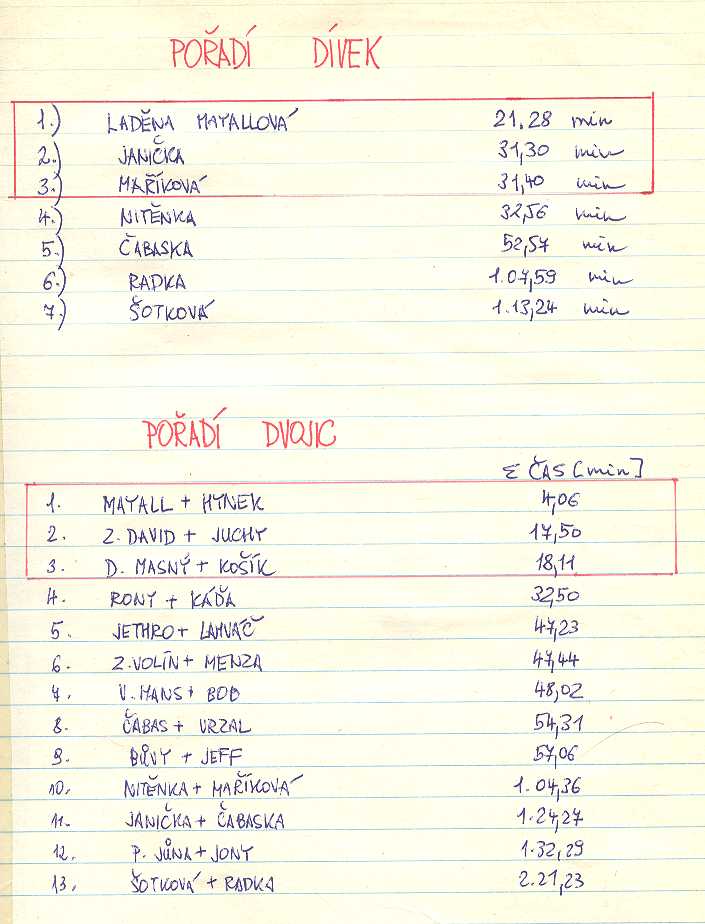 POŘADÍ DÍVEK
1.) LADĚNA MAYALLOVÁ 21,28 min
2.) JANIČKA 31,30 min
3.) MAŘÍKOVÁ 31,40 min
4.) NITĚNKA 32,56 min
5.) ČABASKA 52,57 min
6.) RADKA 1.07,59 min
7.) ŠOTKOVÁ 1.13,24 min
POŘADÍ DVOJIC
Σ ČAS [min]
1. MAYALL + HYNEK 4,06
2. Z. DAVID + JUCHY 17,50
3. D. MASNÝ + KOŠÍK 18,11
4. RONY + KÁĎA 32,50
5. JETHRO + LAHVÁČ 47,23
6. Z. VOLÍN + MENZA 47,44
7. V. HANS + BOB 48,02
8. ČABAS + VRZAL 54,31
9. BŮVY + JEFF 57,06
10. NITĚNKA + MAŘÍKOVÁ 1.04,36
11. JANIČKA + ČABASKA 1.24,27
12. P. JŮNA + JONY 1.32,29
13. ŠOTKOVÁ + RADKA 2.21,23